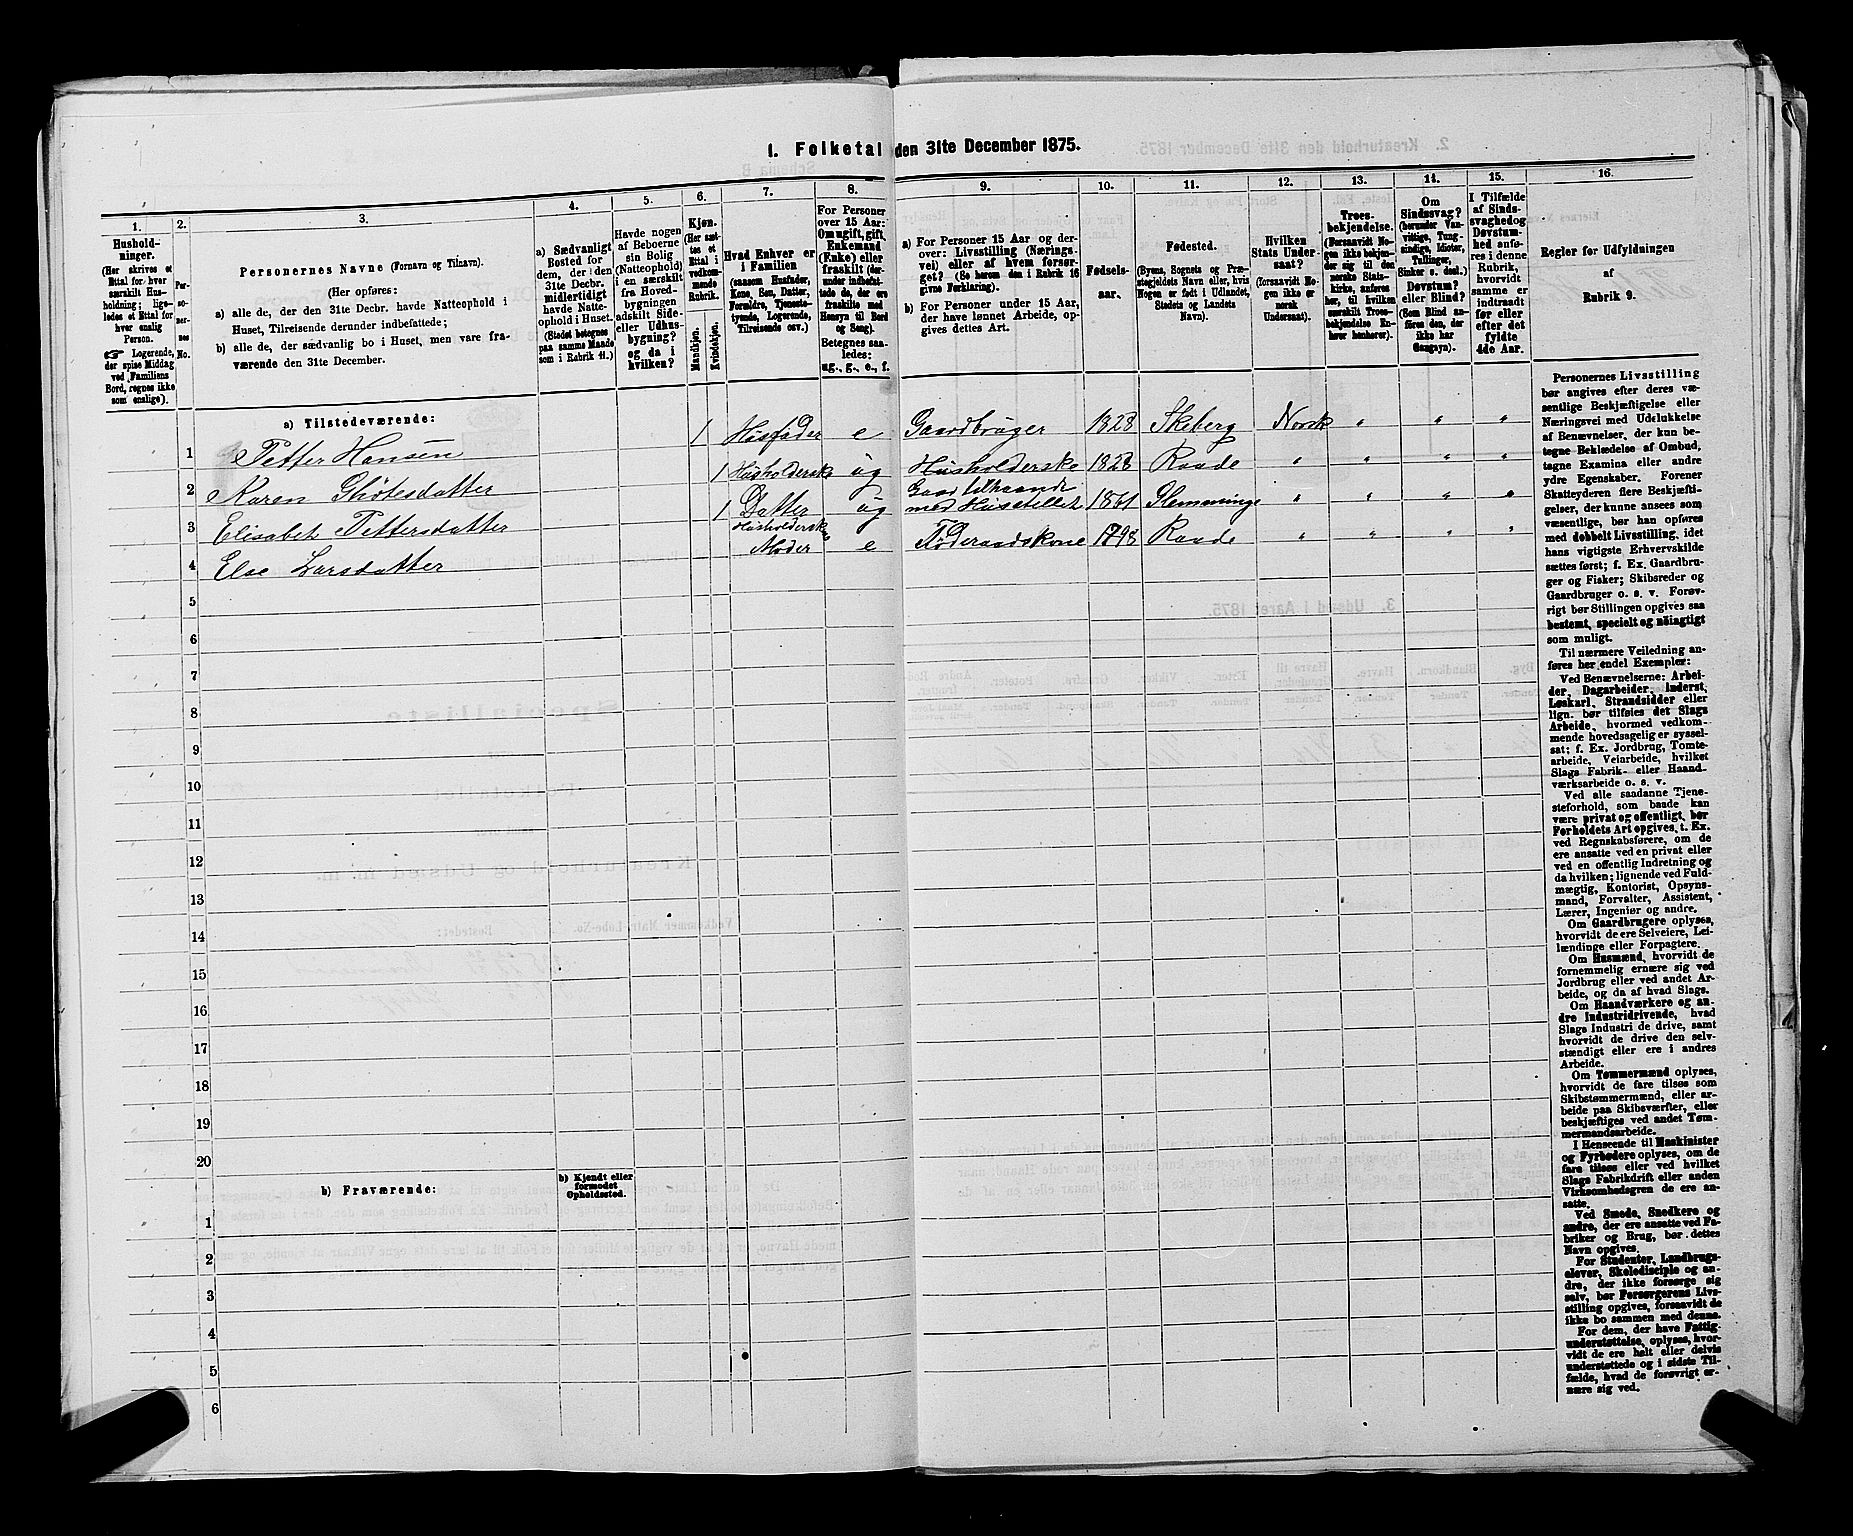 1. Folketal den 31te December 1875.
1. 2. 3. 4. 5. 6. 7. 8. 9. 10. 11. 12. 13. 14. 15. 16.
Hushold-
ninger.
(Her skrives et
Ettal for hver
særskilt Hus-
holdning; lige-
ledes et Ettal for
hver enslig
Person.
☞ Logerende,
der spise Middag
ved Familiens
Bord, regnes ikke
som enslige).
Per-
so-
ner-
nes
No.
Personernes Navne (Fornavn og Tilnavn).
(Her opføres:
a) alle de, der den 31te Decbr. havde Natteophold i
Huset, Tilreisende derunder indbefattede;
b) alle de, der sædvanlig bo i Huset, men vare fra-
værende den 31te December.
a) Sædvanligt
Bosted for
dem, der den
31te Decbr.
midlertidigt
havde Natte-
ophold i Huset.
(Stedet betegnes
paa samme Maade
som i Rubrik 11.)
Havde nogen
af Beboerne
sin Bolig
(Natteophold)
i en særskilt
fra Hoved-
bygningen
adskilt Side-
eller Udhus-
bygning?
og da i
hvilken?
Kjøn.
(Her sæt-
tes et
Ettal i
vedkom-
mende
Rubrik.
Mandkjøn.
Kvindekjøn.
Hvad Enhver er
i Familien
(saasom Husfader,
Kone, Søn, Datter,
Forældre, Tjeneste-
tyende, Logerende,
Tilreisende osv.)
For Personer
over 15 Aar:
Om ugift, gift,
Enkemand
(Enke) eller
fraskilt (der-
under indbefat-
tede de, der ere
fraskilte med
Hensyn til Bord
og Seng).
Betegnes saa-
ledes:
ug., g., e., f.
a) For Personer 15 Aar og der-
over: Livsstilling (Nærings-
vei) eller af hvem forsør-
get? (Se herom den i Rubrik 16
givne Forklaring).
b) For Personer under 15 Aar,
der have lønnet Arbeide, op-
gives dettes Art.
Fødsels-
aar.
Fødested.
(Byens, Sognets og Præ-
stegjeldets Navn eller, hvis
Nogen er født i Udlandet,
Stedets og Landets
Navn).
Hvilken
Stats Under-
saat?
(forsaavidt No-
gen ikke er
norsk
Undersaat).
Troes-
bekjendelse.
(Forsaavidt No-
gen ikke bekjen-
der sig til den
norske Stats-
kirke, anføres
her, til hvilken
særskilt Troes-
bekjendelse En-
hver henhører).
Om
Sindssvag?
(herunder Van-
vittige, Tung-
sindige, Idioter,
Tullinger,
Sinker o. desl.)
Døvstum?
eller Blind?
(Som Blind an-
føres den, der
ikke har
Gangsyn).
I Tilfælde
af Sinds-
svaghed og
Døvstum-
hed anfø-
res i denne
Rubrik,
hvorvidt
samme er
indtraadt
før eller
efter det
fyldte
4de Aar.
Regler for Udfyldningen
af
Rubrik 9.
a) Tilstedeværende:
1 Petter Hansen 1 Husfader e Gaardbruger 1828 Skeberg Norsk " " "
2 Karen Ghötesdatter 1 Husholderske ug Husholderske 1828 Raade " " " "
3 Elisabet Pettersdatter 1 Datter ug
med Husstellet 1861 Glemminge " " " "
4 Else Larsdatter Husholderskes
Moder e Föderaadskone 1798 Raade " " " "
5
6
7
8
9
10
11
12
13
14
15
16
17
18
19
20
b) Fraværende:
b) Kjendt eller
formodet
Opholdssted.
1
2
3
4
5
6
Personernes Livsstilling
bør angives efter deres væ-
sentlige Beskjæftigelse eller
Næringsvei med Udelukkelse
af Benævnelser, der kun be-
tegne Beklædelse af Ombud,
tagne Examina eller andre
ydre Egenskaber. Forener
Skatteyderen flere Beskjæfti-
gelser, der kunne ansees som
væsentlige, bør han opføres
med dobbelt Livsstilling, idet
hans vigtigste Erhvervskilde
sættes først; f. Ex. Gaardbru-
ger og Fisker; Skibsreder og
Gaardbruger o. s. v. Forøv-
rigt bør Stillingen opgives saa
bestemt, specielt og nøiagtigt
som muligt.
Til nærmere Veiledning an-
føres her endel Exempler:
Ved Benævnelserne: Arbei-
der, Dagarbeider, Inderst,
Løskarl, Strandsidder eller
lign. bør tilføies det Slags
Arbeide, hvormed vedkom-
mende hovedsagelig er syssel-
sat; f. Ex. Jordbrug, Tomte-
arbeide, Veiarbeide, hvilket
Slags Fabrik- eller Haand-
værksarbeide o. s. v.
Ved alle saadanne Tjene-
steforhold, som baade kan
være privat og offentligt, bør
Forholdets Art opgives, t. Ex.
ved Regnskabsførere, om de
ere ansatte ved en privat eller
ved en offentlig Indretning og
da hvilken; lignende ved Fuld-
mægtig, Kontorist, Opsyns-
mand, Forvalter, Assistent,
Lærer, Ingeniør og andre.
Om Gaardbrugere oplyses,
hvorvidt de ere Selveiere, Lei-
lændinge eller Forpagtere.
Om Husmænd, hvorvidt de
fornemmelig ernære sig ved
Jordbrug eller ved andet Ar-
beide, og da af hvad Slags.
Om Haandværkere og an-
dre Industridrivende, hvad
Slags Industri de drive, samt
hvorvidt de drive den selv-
stændigt eller ere i andres
Arbeide.
Om Tømmermænd oplyses,
hvorvidt de fare tilsøs som
Skibstømmermænd, eller ar-
beide paa Skibsværfter, eller
beskjæftiges ved andet Tøm-
mermandsarbeide.
I Henseende til Maskinister
og Fyrbødere oplyses, om de
fare tilsøs eller ved hvilket
Slags Fabrikdrift eller anden
Virksomhedsgren de ere an-
satte.
Ved Smede, Snedkere og
andre, der ere ansatte ved Fa-
briker og Brug, bør dettes
Navn opgives.
For Studenter, Landbrugs-
elever, Skoledisciple og an-
dre, der ikke forsørge sig
selv, bør Forsørgerens Livs-
stilling opgives, forsaavidt de
ikke bo sammen med denne.
For dem, der have Fattig-
understøttelse, oplyses, hvor-
vidt de ere helt eller delvis
understøttede og i sidste Til-
fælde, hvad de forøvrigt er-
nære sig ved.